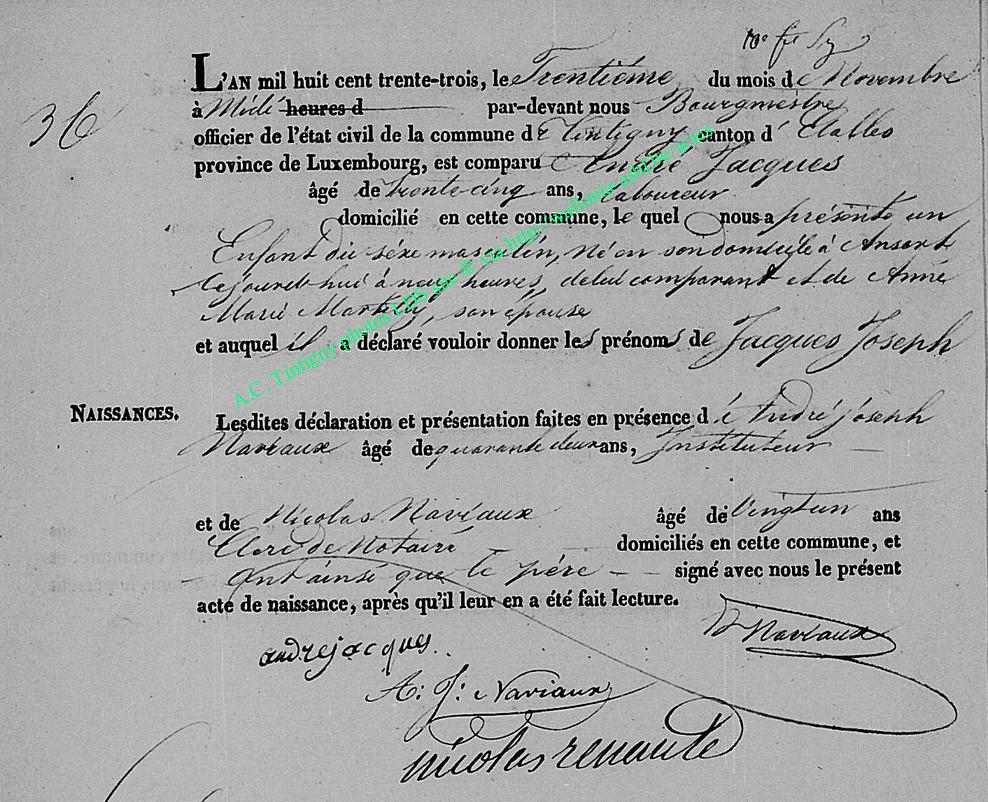 36
L'AN mil huit cent trente-trois, le Trentième du mois de Novembre
à Midi heures d par-devant nous Bourgmestre
officier de l'état civil de la commune de Tintigny canton d'Etalle
province de Luxembourg, est comparu André Jacques
âgé de trente cinq ans, Laboureur
domicilié en cette commune, le quel nous a présenté un
Enfant du séxe masculin, né en son domicile à Ansart
cejourd'hui à neuf heures, de lui comparant et de Anne
Marie son épouse
et auquel il a déclaré vouloir donner les prénoms de Jacques Joseph
NAISSANCES.
Lesdites déclaration et présentation faites en présence d é André joseph
Naviaux âgé de quarante deux ans, Instituteur
et de Nicolas Naviaux âgé de Vingt un ans
Clerc de Notaire domiciliés en cette commune, et
Ont ainsi que le père signé avec nous le présent
acte de naissance, après qu'il leur en a été fait lecture.
N Naviaux
andrejacques
A: J: Naviaux
nicolas renauld
A.C. Tintigny photos LDS site © via http://wallonia-asbl.be/actes